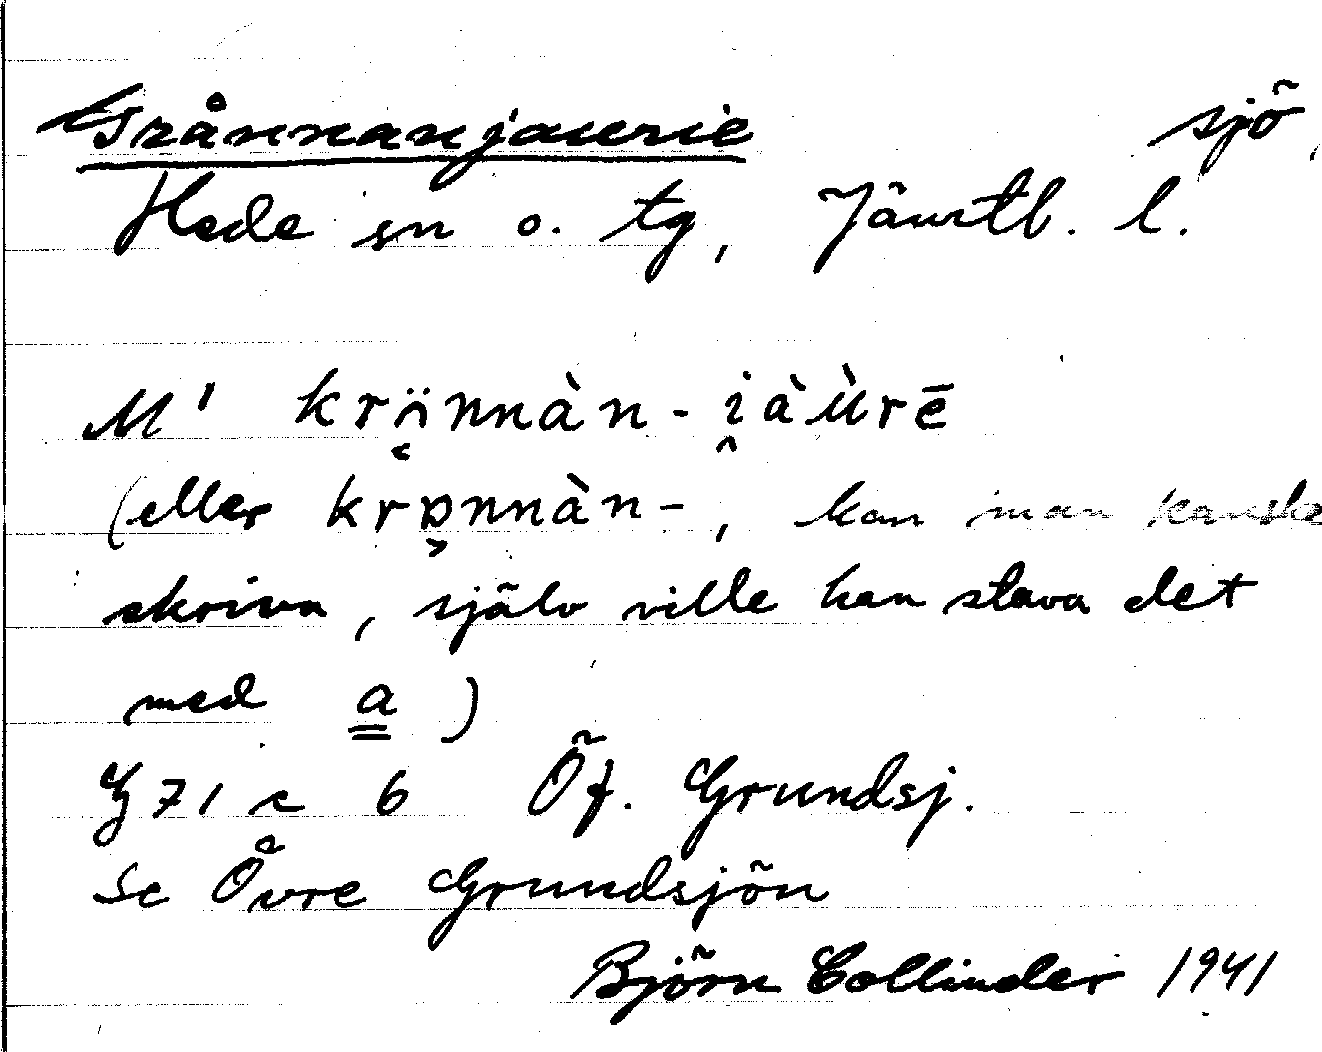 Grånnanjaurie sjö,
Hede sn o. tg, Jämtl. l.
M' krö̭nnàn-i̭àùrē
(eller krɒ̭nnàn-, kan man kanske
skriva, själv ville han stava det
med a)
G 71 c 6 Öf. Grundsj.
Se Övre Grundsjön
Björn Collinder 1941